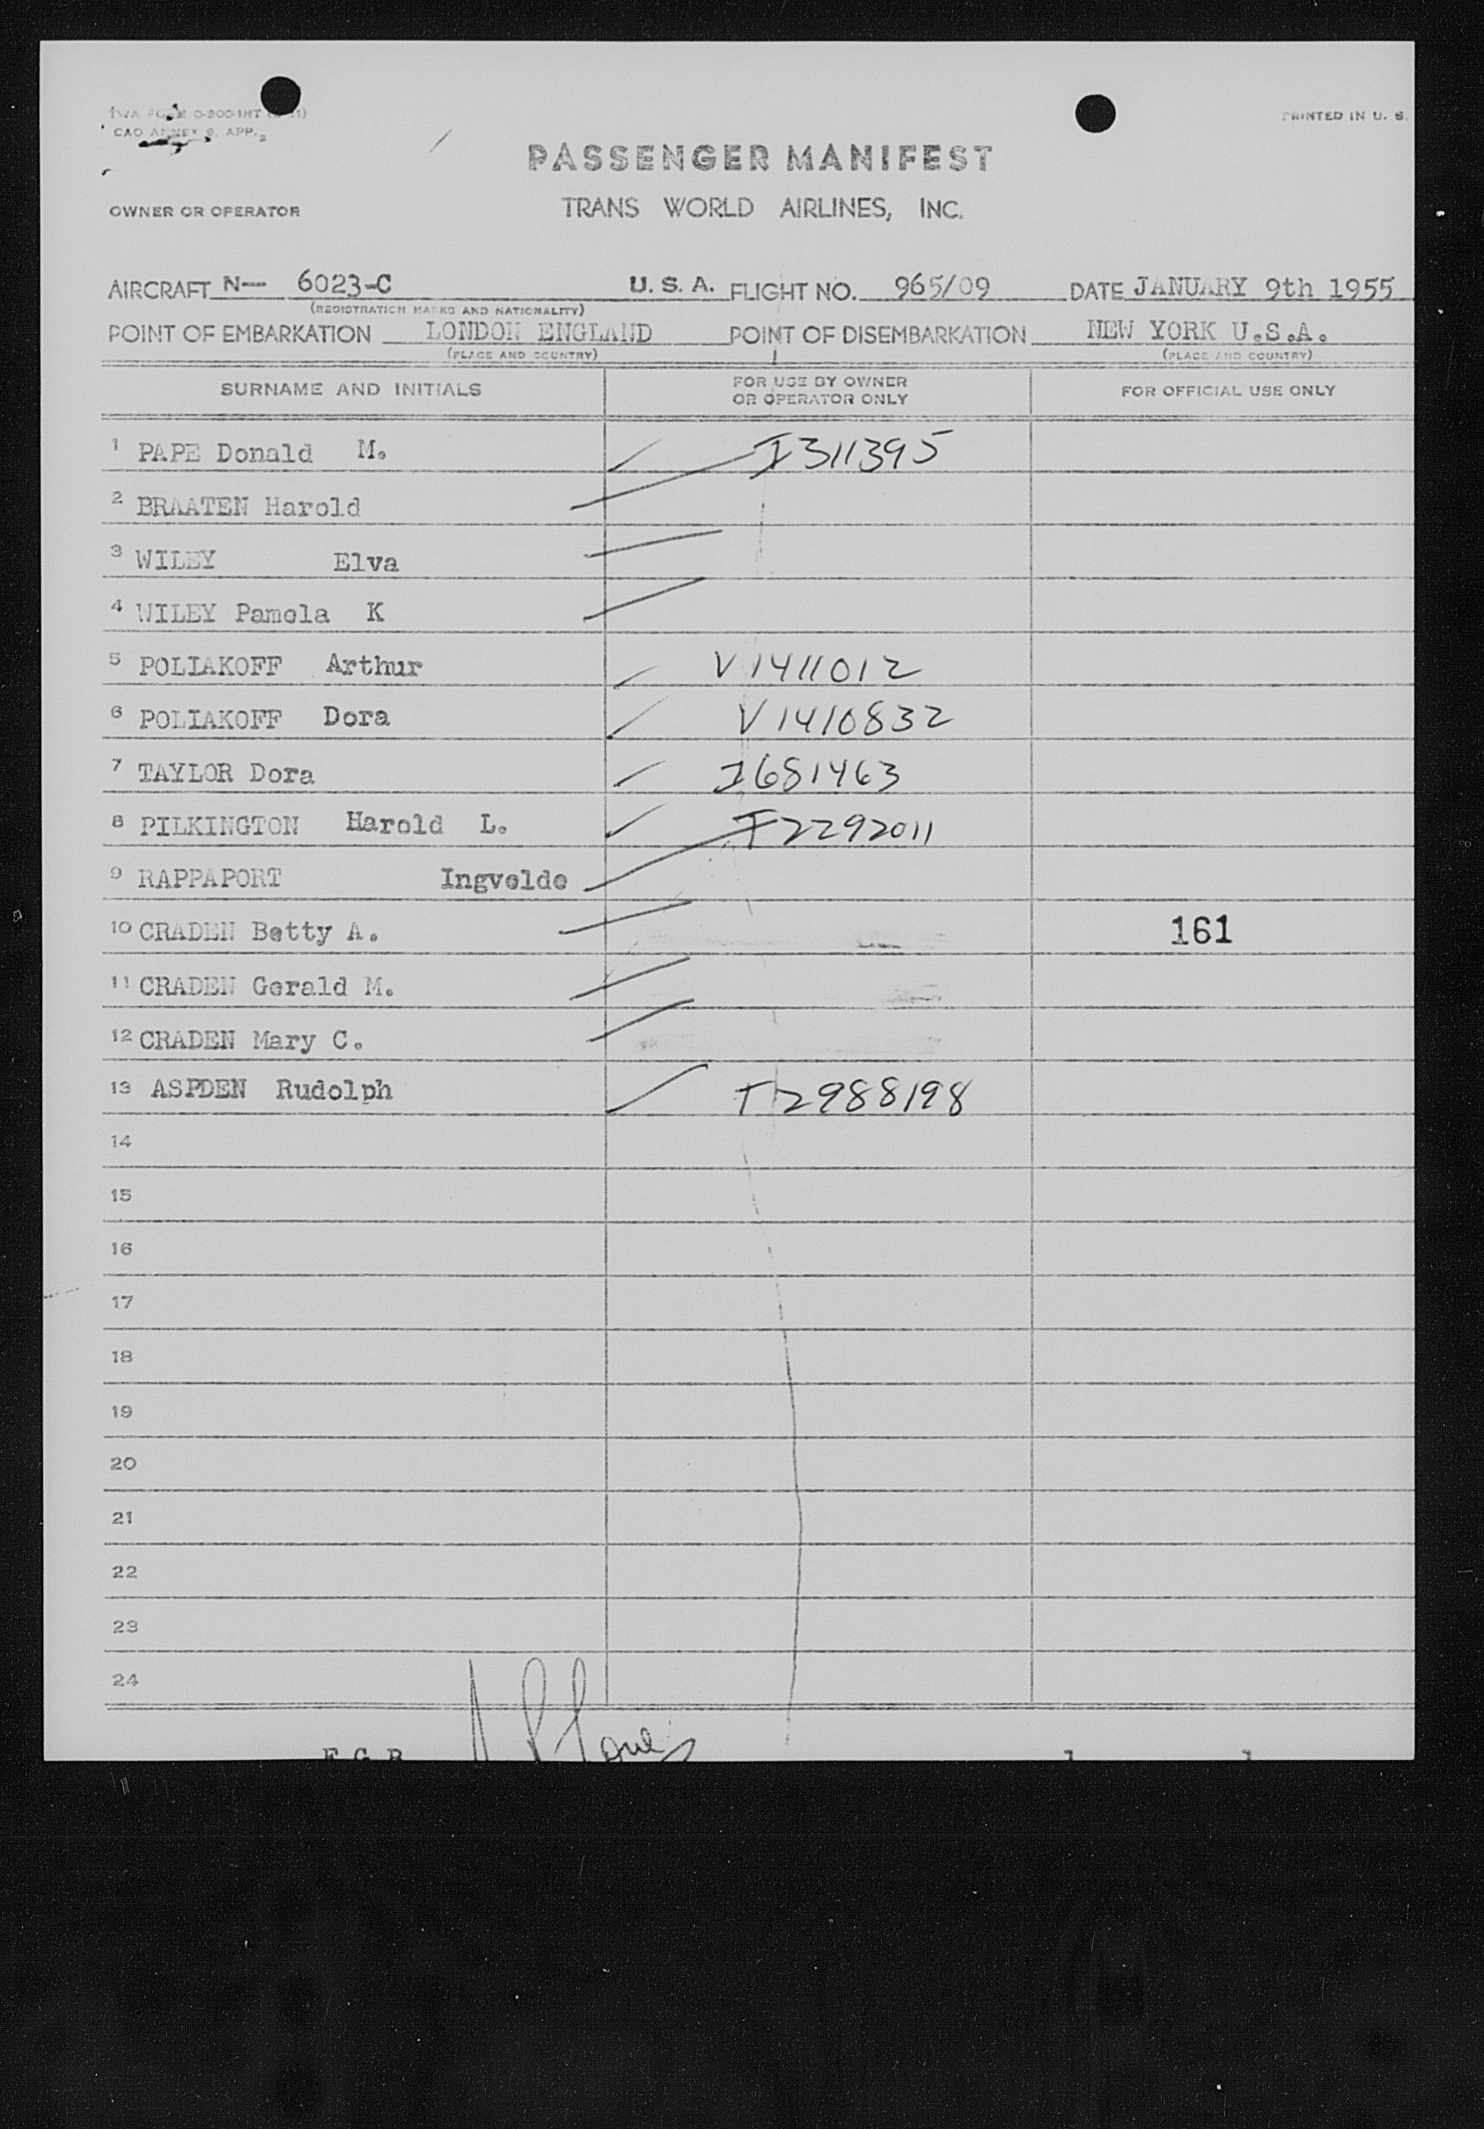 TWA FORM O-200-1HT
CAO ANNEX 9, APP. 2
PRINTED IN U. S.
PASSENGER MANIFEST
OWNER OR OPERATOR TRANS WORLD AIRLINES, INC.
AIRCRAFT N— 6023-C U. S. A. FLIGHT NO. 965/09 DATE JANUARY 9th 1955
(REGISTRATION MARKS AND NATIONALITY)
POINT OF EMBARKATION LONDON ENGLAND POINT OF DISEMBARKATION NEW YORK U.S.A.
(PLACE AND COUNTRY) (PLACE AND COUNTRY)
SURNAME AND INITIALS FOR USE BY OWNER OR OPERATOR ONLY FOR OFFICIAL USE ONLY
1 PAPE Donald M. I311395
2 BRAATEN Harold
3 WILEY Elva
4 WILEY Pamela K
5 POLIAKOFF Arthur V1411012
6 POLIAKOFF Dora V1410832
7 TAYLOR Dora I681463
8 PILKINGTON Harold L. I2292011
9 RAPPAPORT Ingvelde
10 CRADEN Betty A. 161
11 CRADEN Gerald M.
12 CRADEN Mary C.
13 ASPDEN Rudolph T2988198
14
15
16
17
18
19
20
21
22
23
24